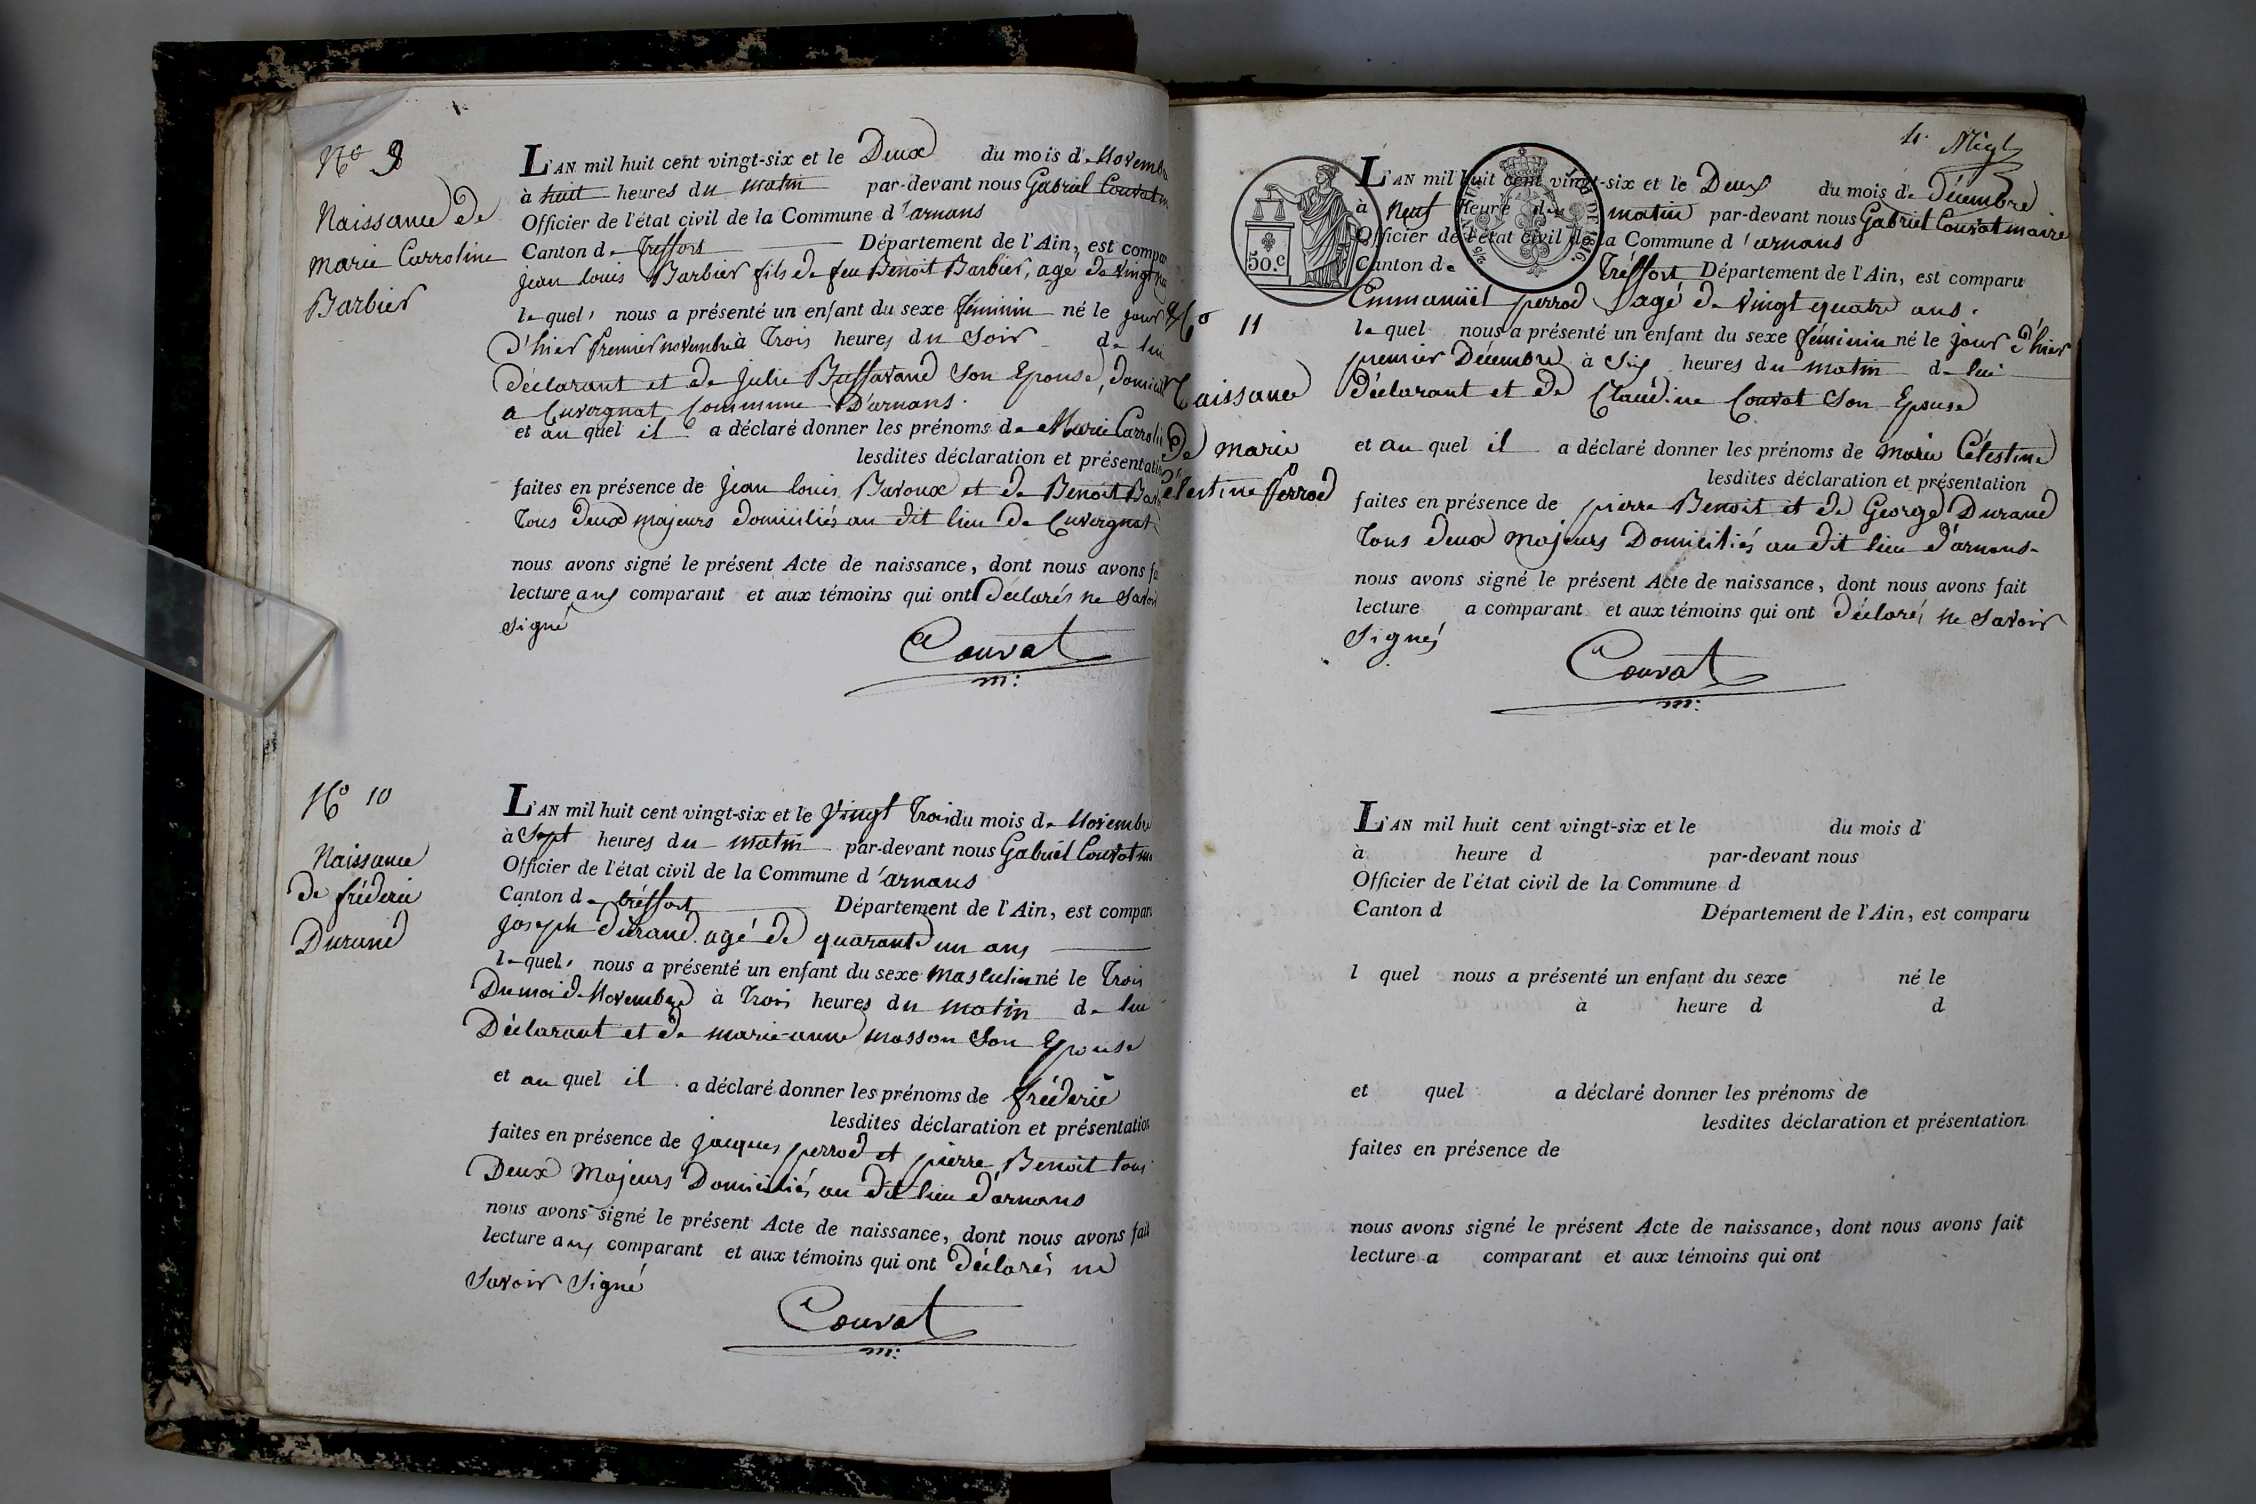 N° 9
Naissance de
marie Carroline
Barbier
L'AN mil huit cent vingt-six et le Deux du mois de Novembre
à huit heures du matin par-devant nous Gabriel Couvat m
Officier de l'état civil de la Commune d'arnans
Canton de Treffort Département de l'Ain, est compar
jean louis Barbier fils de feu Benoit Barbier, agé de vingt
lequel, nous a présenté un enfant du sexe féminin né le jour
d'hier premier novembre à Trois heures du Soir de lui
Déclarant et de Julie Buffavand Son Epouse, domicilié
a Cuvergnat Commune D'arnans.
et au quel il a déclaré donner les prénoms de Marie Carroli
lesdites déclaration et présentation
faites en présence de jean louis Bavoux et de Benoit Bar
Tous deux majeurs domiciliés au dit lieu de Cuvergnat
nous avons signé le présent Acte de naissance, dont nous avons fa
lecture aux comparant et aux témoins qui ont Déclarés ne Savoir
Signé
Couvat
m:
N° 10
Naissance
de fréderic
Durand
L'AN mil huit cent vingt-six et le Vingt Trois du mois de Novembre
à Sept heures du matin par-devant nous Gabriel Couvat m
Officier de l'état civil de la Commune d'arnans
Canton de tréffort Département de l'Ain, est compar
joseph durand agé de quarante un ans
lequel, nous a présenté un enfant du sexe masculin né le Trois
Du moi de Novembre à Trois heures du matin de lui
Déclarant et de marie-anne masson Son Epouse
et au quel il a déclaré donner les prénoms de fréderic
lesdites déclaration et présentation
faites en présence de jacques perrod et pierre Benoit tous
Deux Majeurs Domiciliés au dit lieu d'arnans
nous avons signé le présent Acte de naissance, dont nous avons fait
lecture aux comparant et aux témoins qui ont Déclarés ne
Savoir Signé
Couvat
m:
4.
50.c
DE 1816.
N° 11
Naissance
De marie
Célestine perrod
L'AN mil huit cent vingt-six et le Deux du mois de Décembre
à Neuf heure du matin par-devant nous Gabriel Couvat maire
Officier de l'état civil de la Commune d'arnans
Canton de Tréffort Département de l'Ain, est comparu
Emmanuël perrod agé de vingt quatre ans.
lequel nous a présenté un enfant du sexe féminin né le jour d'hier
premier Décembre à Six heures du matin de lui
Déclarant et de Claudine Couvat Son Epouse
et au quel il a déclaré donner les prénoms de marie Célestine
lesdites déclaration et présentation
faites en présence de pierre Benoit et de George Durand
Tous deux majeurs Domiciliés au dit lieu d'arnans
nous avons signé le présent Acte de naissance, dont nous avons fait
lecture a comparant et aux témoins qui ont déclarés ne Savoir
Signés
Couvat
m:
L'AN mil huit cent vingt-six et le du mois d
à heure d par-devant nous
Officier de l'état civil de la Commune d
Canton d Département de l'Ain, est comparu
l quel nous a présenté un enfant du sexe né le
à heure d d
et quel a déclaré donner les prénoms de
lesdites déclaration et présentation
faites en présence de
nous avons signé le présent Acte de naissance, dont nous avons fait
lecture a comparant et aux témoins qui ont